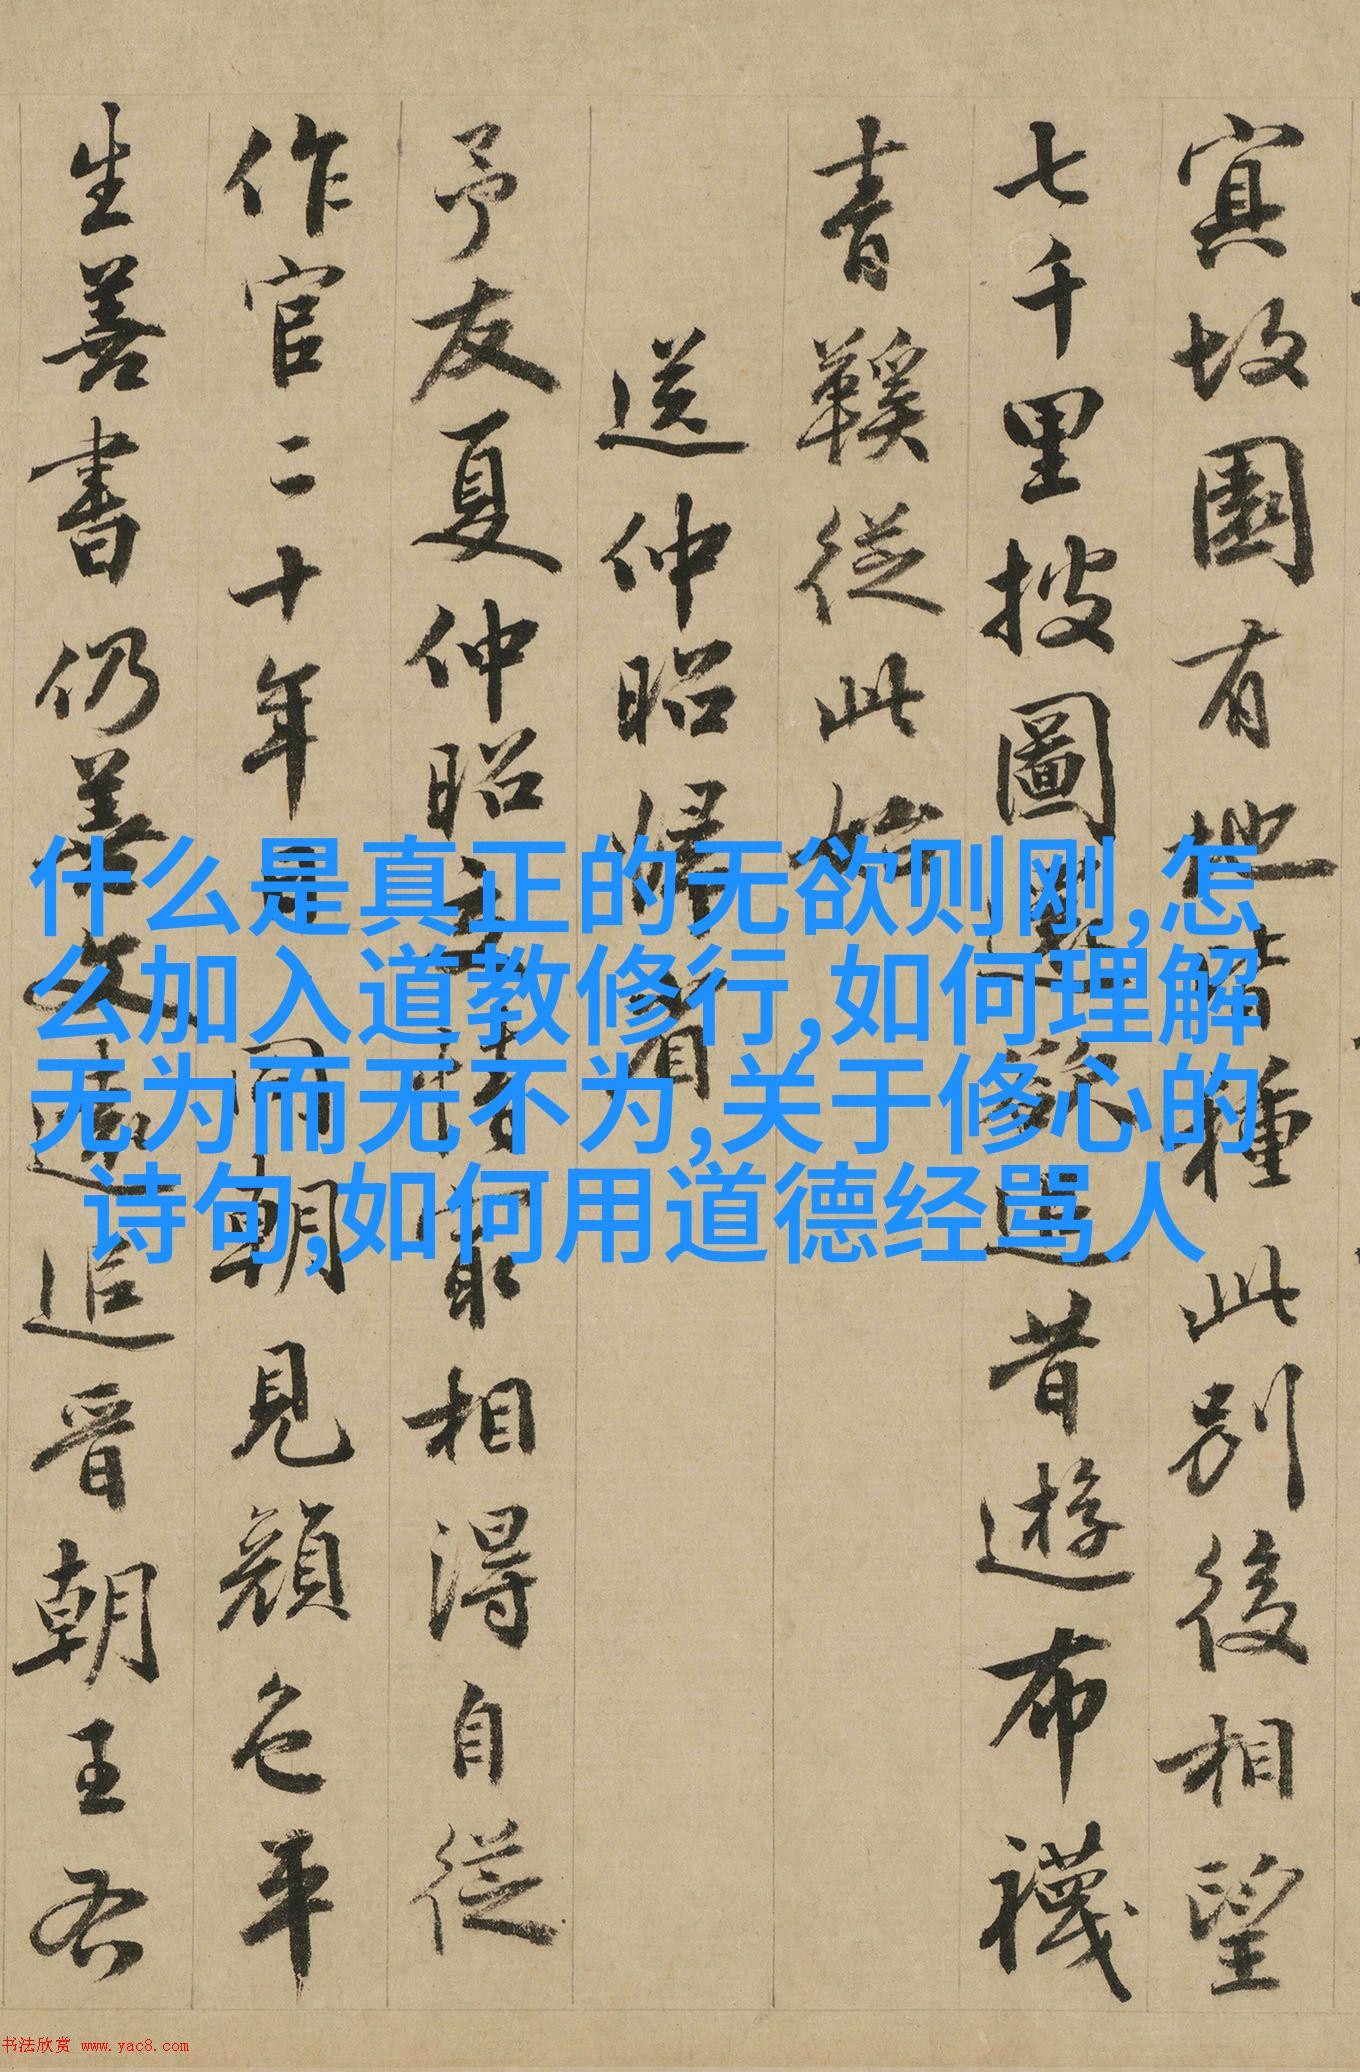 寘故園有地皆種此別後相望
七千里披圖欲追昔遊布襪
青鞵從此始
送仲昭歸省
予友夏仲昭交情最相得自從
作官二十年日日同朝見顏色平
生善書仍善文遠追晉朝王右
什么是真正的无欲则刚,怎
么加入道教修行,如何理解
无为而无不为,关于修心的
诗句,如何用道德经骂人
书法欣赏 www.yac8.com